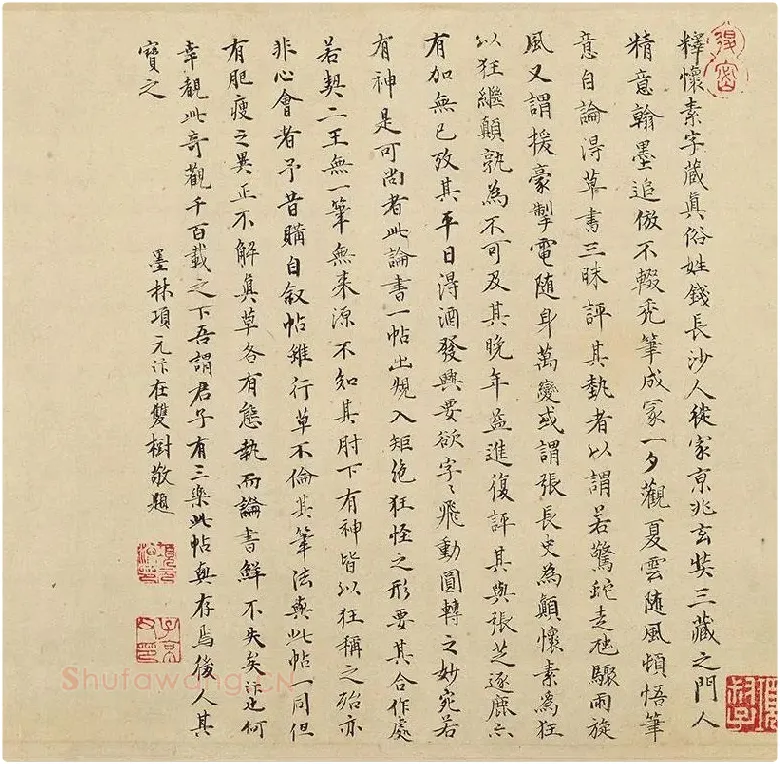 釋懷素字藏真俗姓錢長沙人從家京兆玄奘三藏之門人
精意翰墨追倣不輟禿筆成冢一夕觀夏雲随風頓悟筆
意自論得草書三昧評其埶者以謂若驚蛇走虺驟雨旋
風又謂援豪掣電随身萬變或謂張長史為顛懷素為狂
以狂繼顛孰為不可及其晚年益進復評其與張芝逐鹿亦
有加無已攷其平日得酒發興要欲字〻飛動圓轉之妙宛若
有神是可尚者此論書一帖出規入矩絶狂怪之形要其合作處
若契二王無一筆無来源不知其肘下有神皆以狂稱之殆亦
非心會者予昔購自叙帖雖行草不倫其筆法與此帖一同但
有肥瘦之異正不解真草各有態埶而論書鮮不失矣汴也何
幸覩此奇觀千百載之下吾謂君子有三樂此帖與存焉後人其
寶之
墨林項元汴在雙樹敬題
子京父印
Shufawang.CN